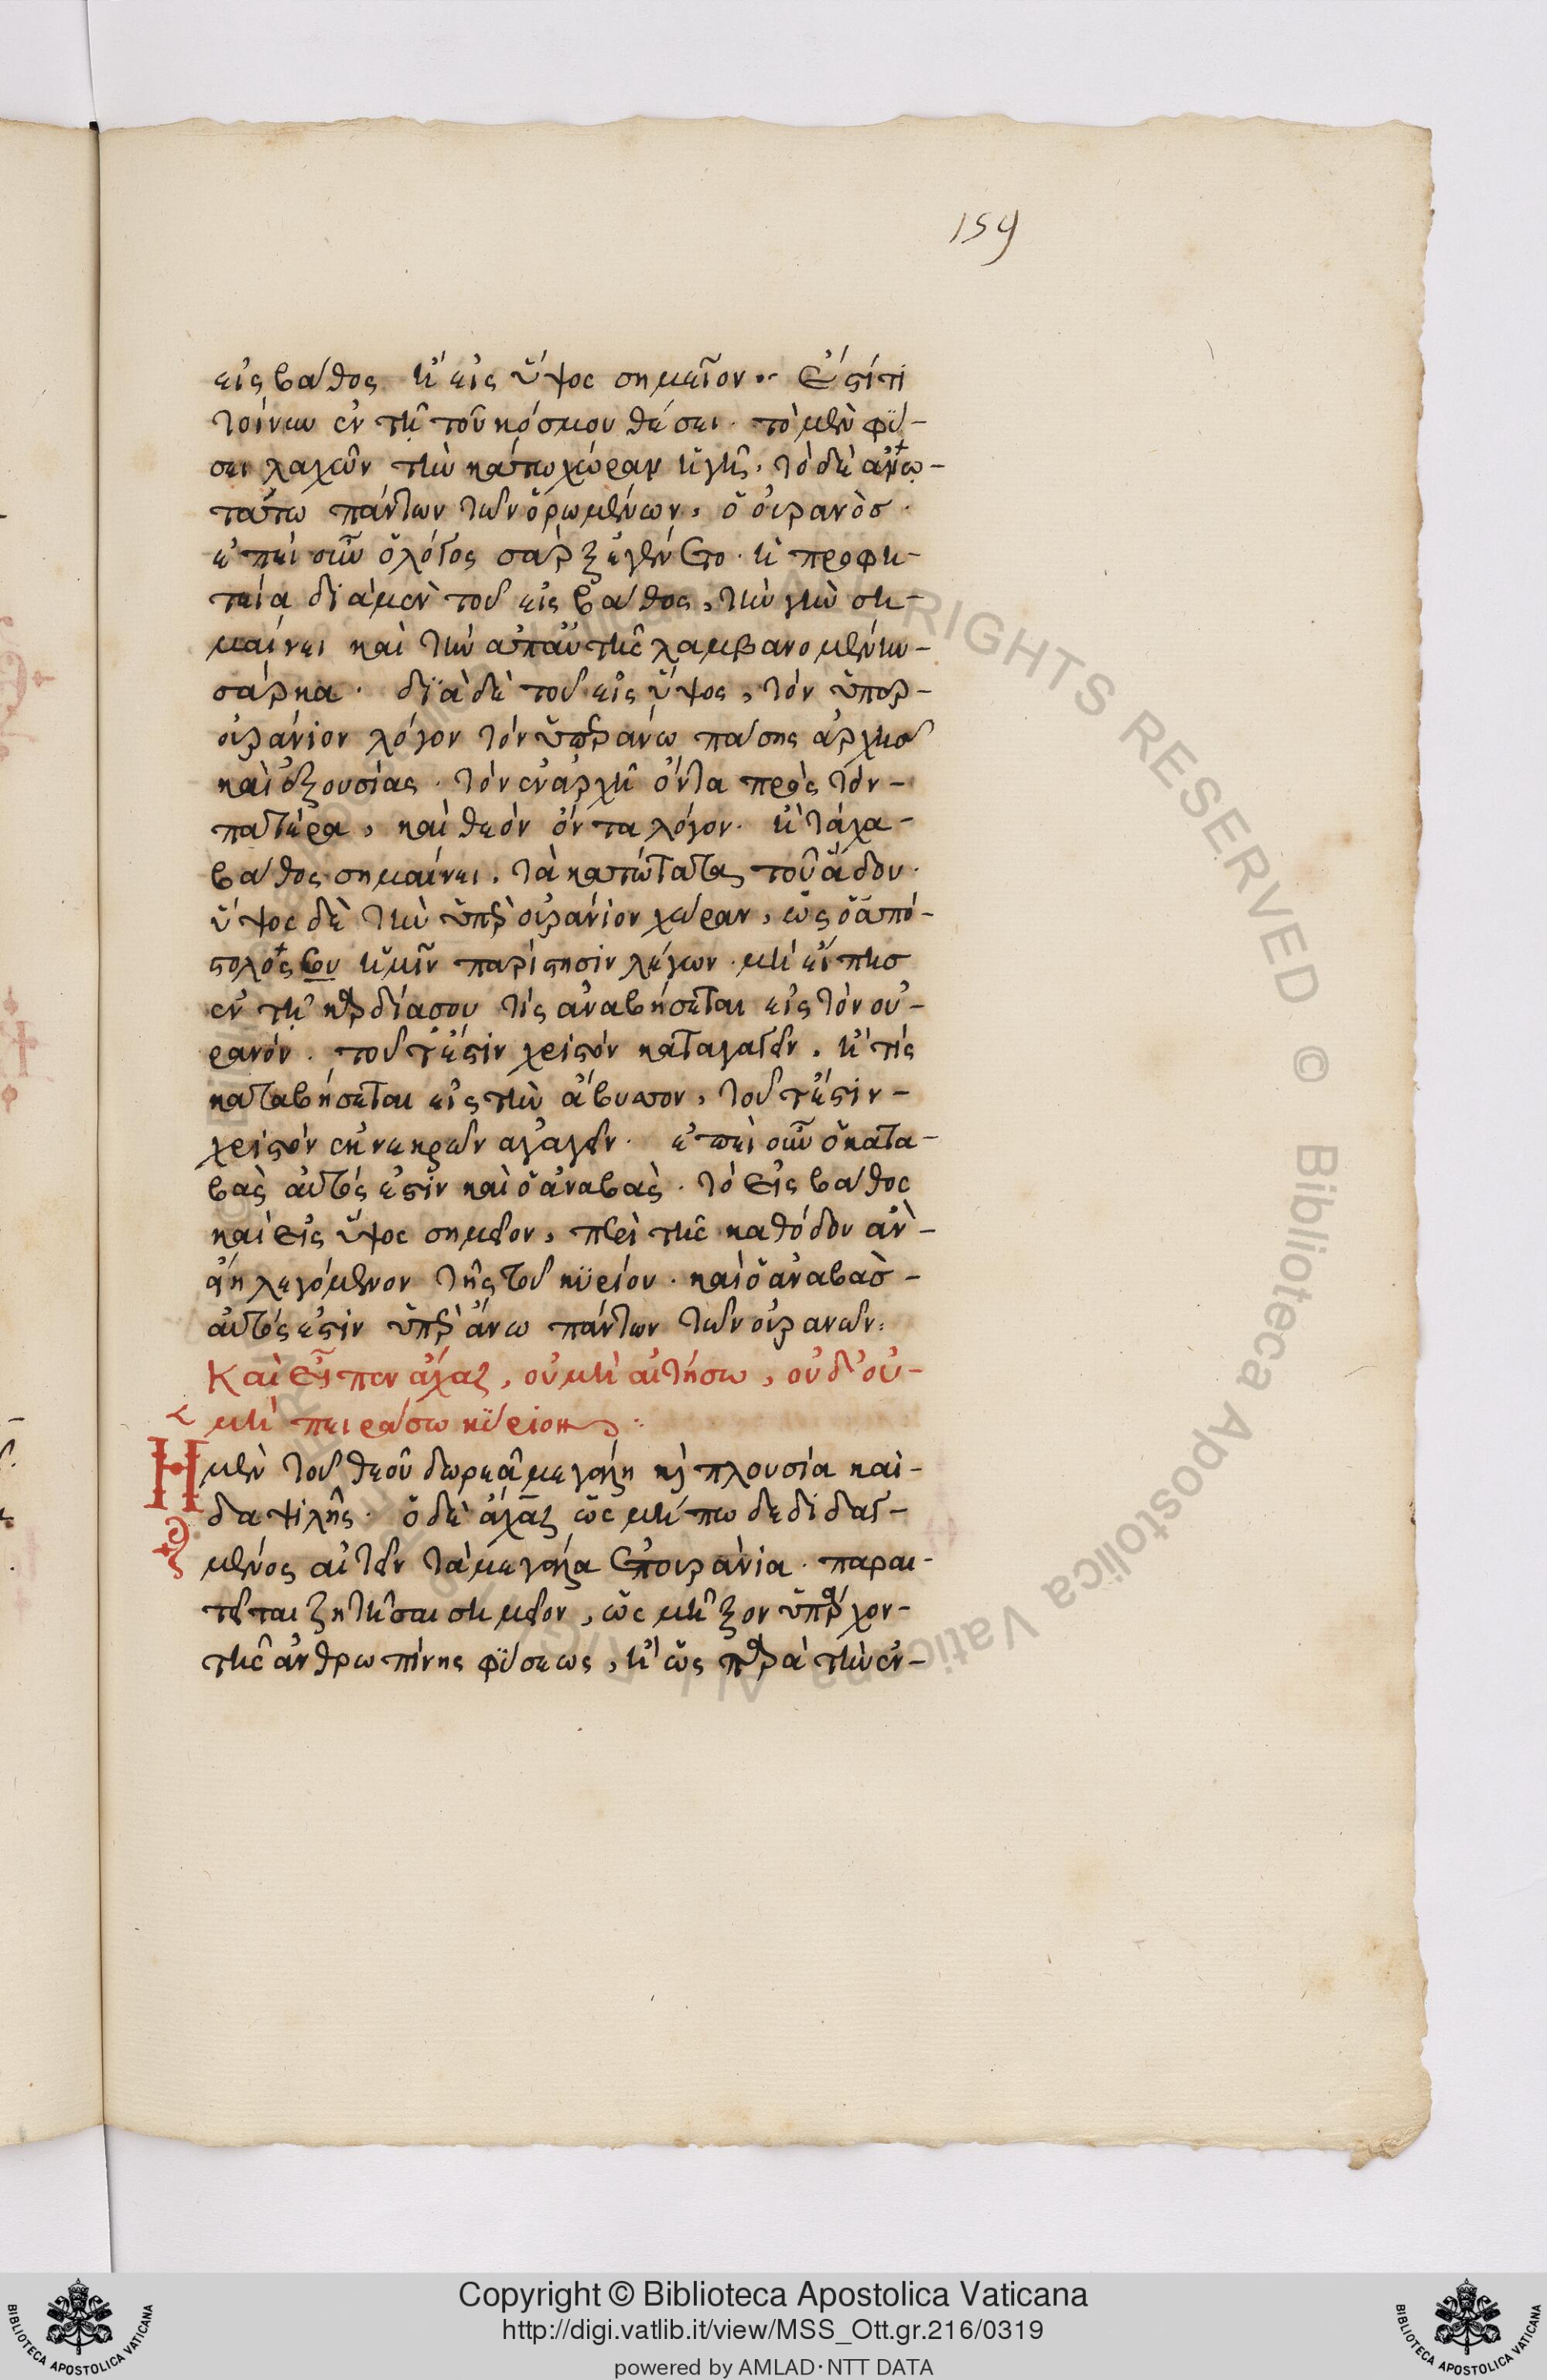 159
εἰς βάθος ἢ εἰς ὕψος σημεῖον· Ἐστί τι
τοίνυν ἐν τῇ τοῦ κόσμου θέσει· τὸ μὲν φύ-
σει λαχὸν τὴν κάτω χώραν ἡ γῆ, τὸ δὲ ἀνω-
τάτω πάντων τῶν ὁρωμένων, ὁ οὐρανὸσ·
ἐπεὶ οὖν ὁ λόγος σὰρξ ἐγένετο· ἡ προφη-
τεία διὰ μὲν τοῦ εἰς βάθος, τὴν γῆν ση-
μαίνει καὶ τὴν ἀπ' αὐτῆς λαμβανομένην-
σάρκα· διὰ δὲ τοῦ εἰς ὕψος, τὸν ὑπερ-
οράνιον λόγον τὸν ὑπεράνω πάσης ἀρχῆσ
καὶ ἐξουσίας· τὸν ἐν ἀρχῇ ὄντα πρὸς τὸν-
πατέρα, καὶ θεὸν ὄντα λόγον· ἢ τάχα-
βάθος σημαίνει, τὰ κατώτατα τοῦ ἅδου·
ὕψος δὲ τὴν ὑπερουράνιον χώραν, ὡς ὁ ἀπό-
στολος ἡμῖν παρίστησιν λέγων· μὴ εἴπησ
ἐν τῇ καρδίᾳ σου τίς ἀναβήσεται εἰς τὸν οὐ-
ρανόν· τοῦτ' ἔστιν χριστὸν καταγαγεῖν, ἢ τίς
καταβήσεται εἰς τὴν ἄβυσσον, τοῦτ' ἔστιν-
χριστὸν ἐκ νεκρῶν ἀγαγεῖν· ἐπεὶ οὖν ὁ κατα-
βὰς αὐτός ἐστιν καὶ ὁ ἀναβὰς· τὸ εἰς βάθος
καὶ εἰς ὕψος σημεῖον, περὶ τῆς καθόδου ἂν-
εἴη λεγόμενον τῆς τοῦ κυρίου· καὶ ὁ ἀναβὰσ-
αὐτός ἐστιν ὑπεράνω πάντων τῶν οὐρανῶν:
Καὶ εἶπεν ἄχαζ, οὐ μὴ αἰτήσω, οὐδ' οὐ-
μὴ πειράσω κύριον:
Η μὲν τοῦ θεοῦ δωρεὰ μεγάλη κὶ πλουσία καὶ-
δαψιλής· ὁ δὲ ἄχαζ ὡς μήπω δεδιδαγ-
μένος αἰτεῖν τὰ μεγάλα ἐπουράνια· παραι-
τεῖται ζητῆσαι σημεῖον, ὡς μεῖζον ὑπάρχον-
τῆς ἀνθρωπίνης φύσεως, ἢ ὡς παρὰ τὴν ἐν-
Copyright © Biblioteca Apostolica Vaticana
http://digi.vatlib.it/view/MSS_Ott.gr.216/0319
powered by AMLAD·NTT DATA